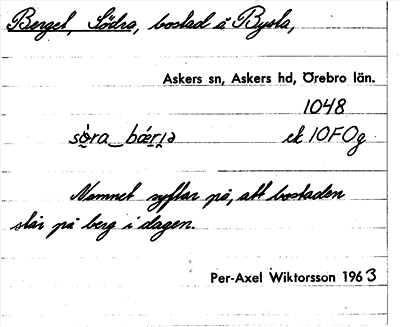 Berget, Södra, bostad å Bysta,
Askers sn, Askers hd, Örebro län.
1048
ek 10F0g
Namnet syftar på, att bostaden
står på berg i dagen.
Per-Axel Wiktorsson 1963